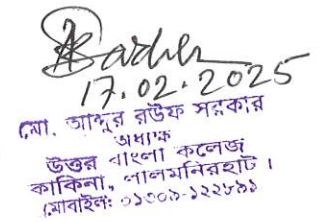 17.02.2025
মো. আব্দুর রউফ সরকার
অধ্যক্ষ
উত্তর বাংলা কলেজ
কাকিনা, লালমনিরহাট।
মোবাইল: ০১৩০৯-১২২৮৯১